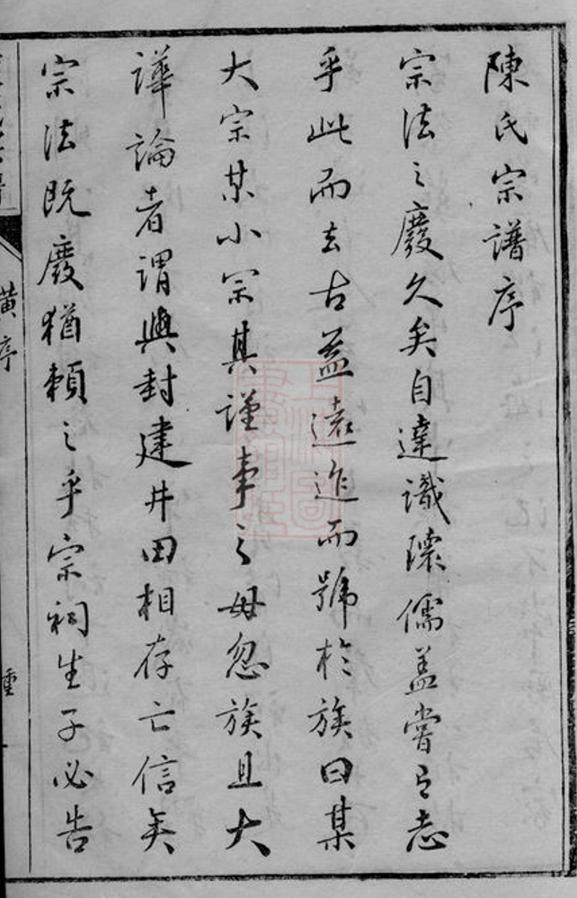 陳氏宗譜序
宗法之廢久矣自達識瓌儒盖嘗有志
乎此而去古益遠迨而號於族曰某
大宗某小宗其謹事之毋忽族且大
譁論者謂與封建井田相存亡信矣
宗法既廢猶賴之乎宗祠生子必告
黄序
重